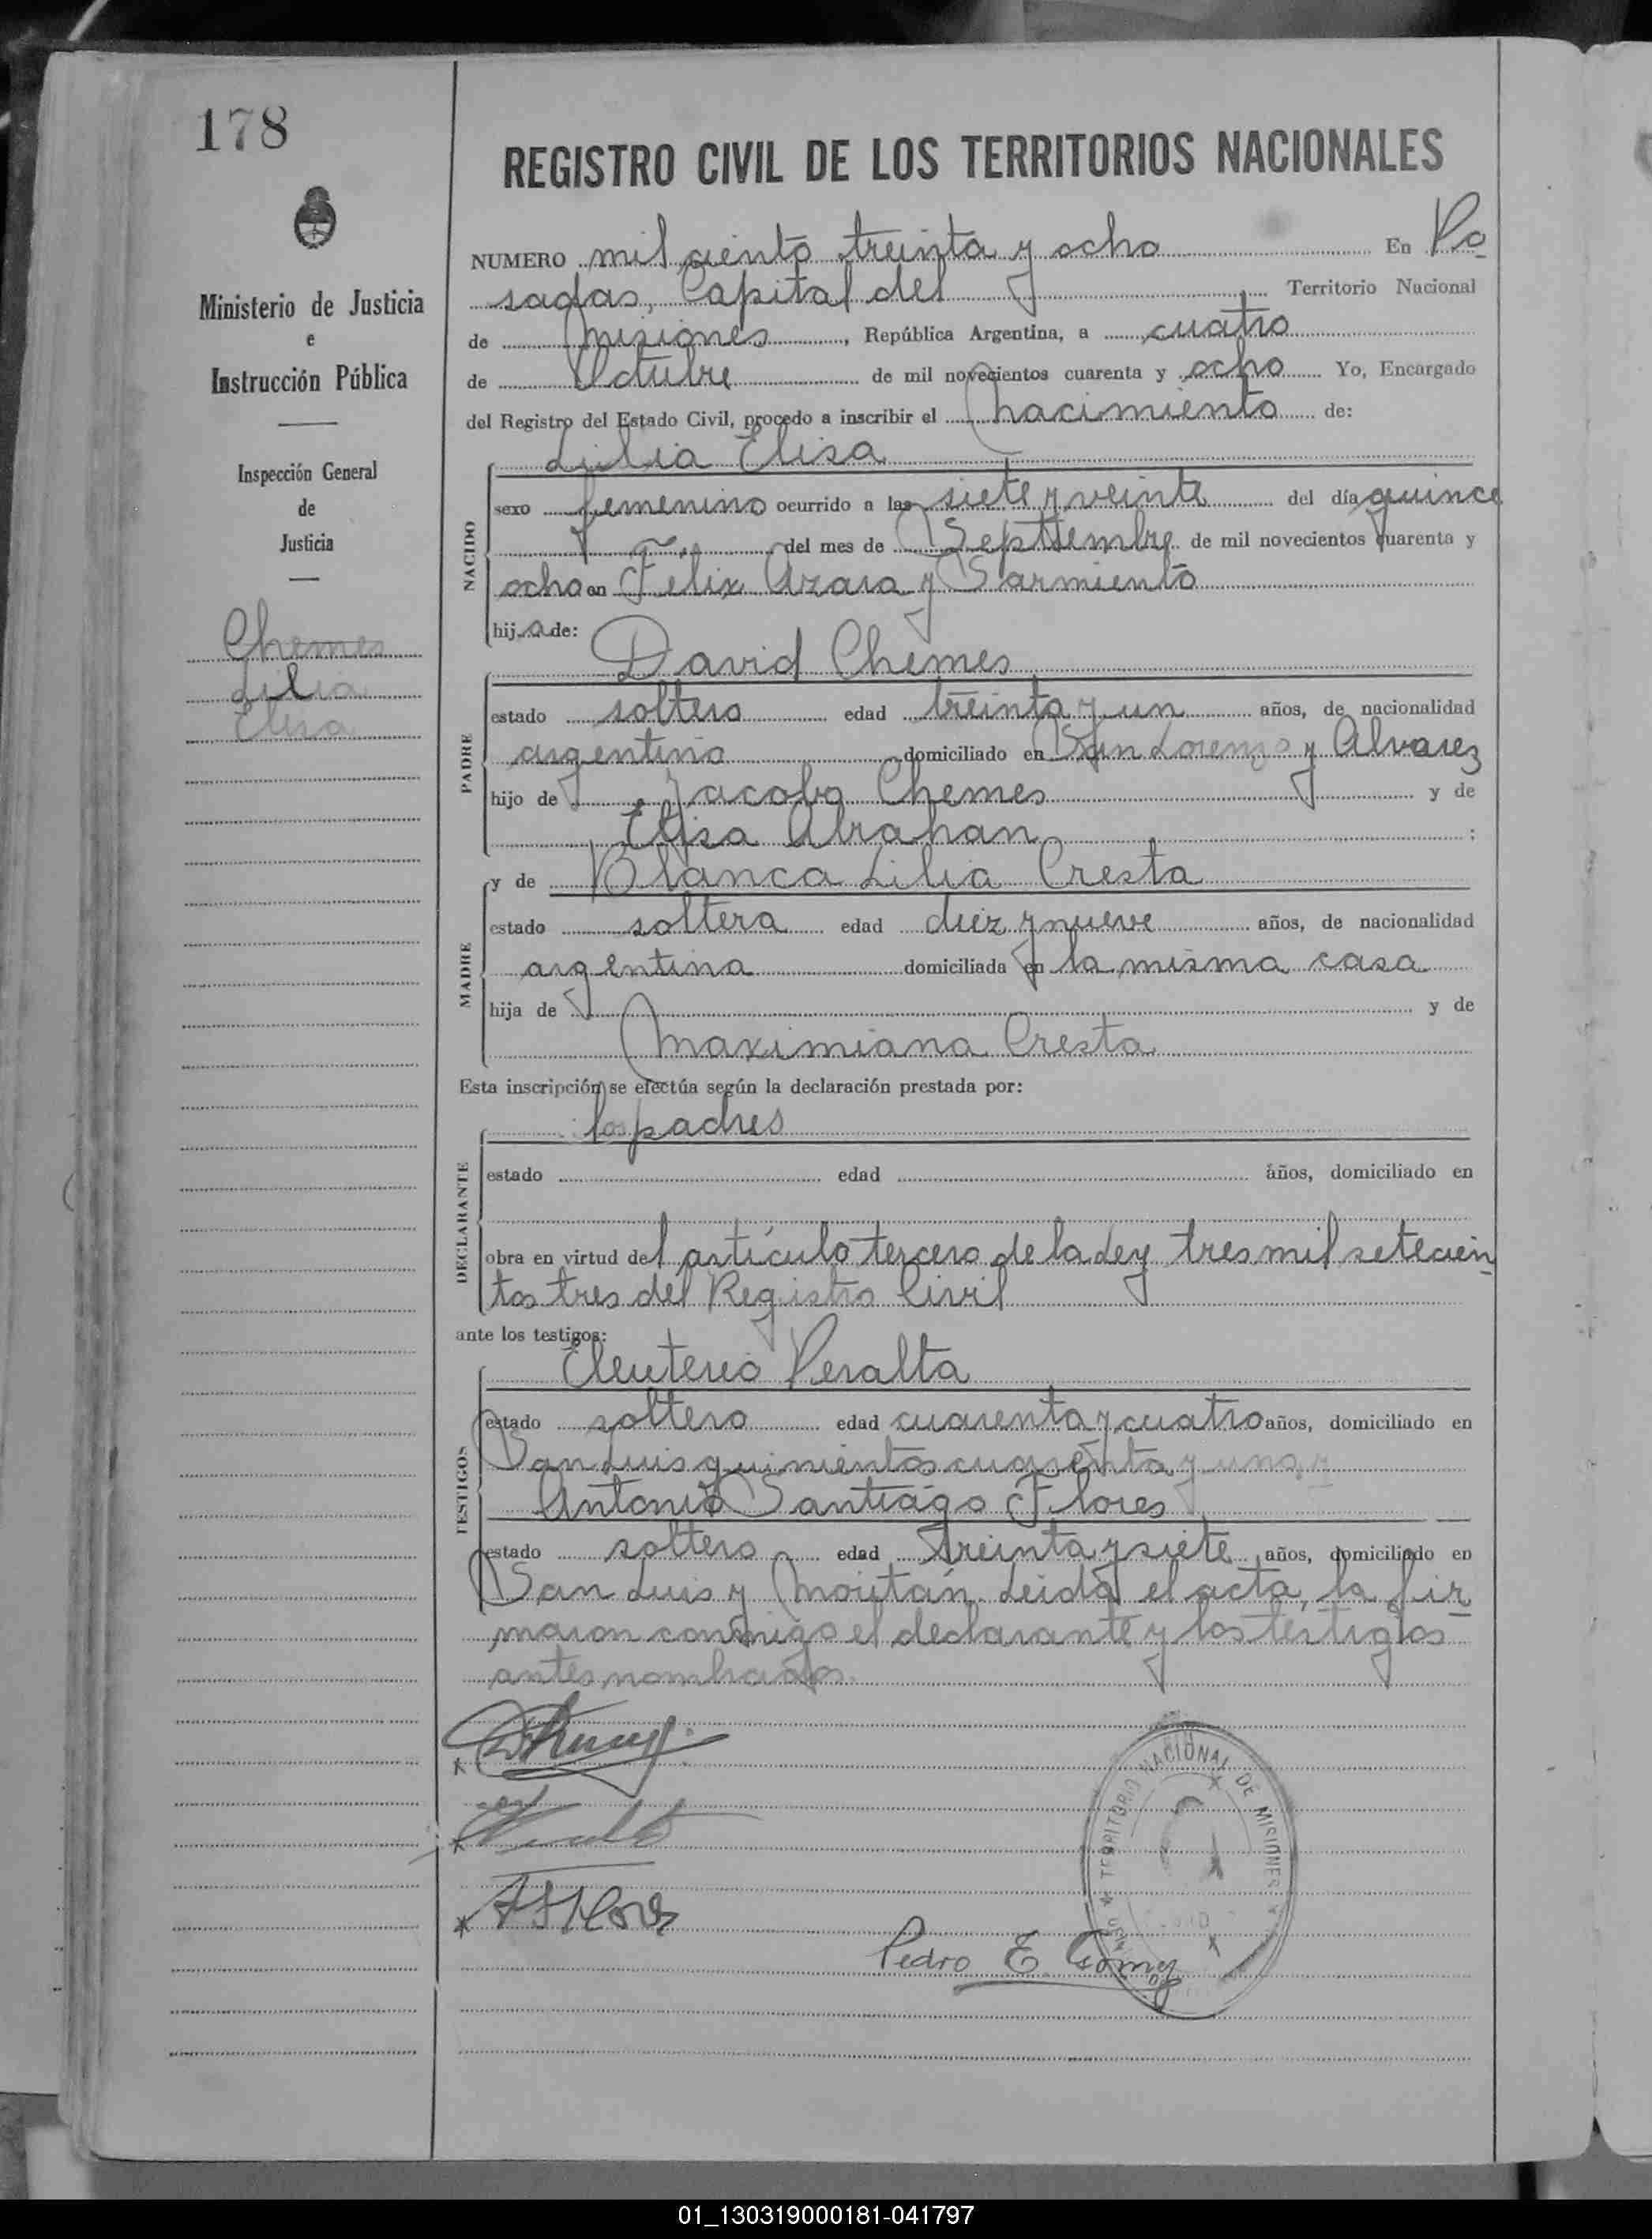 178
REGISTRO CIVIL DE LOS TERRITORIOS NACIONALES
Ministerio de Justicia
e
Instrucción Pública
Inspección General
de
Justicia
Chemes
Lilia
Elisa
NUMERO mil ciento treinta y ocho En Po
sadas, Capital del Territorio Nacional
de Misiones, República Argentina, a cuatro
de Octubre de mil novecientos cuarenta y ocho Yo, Encargado
del Registro del Estado Civil, procedo a inscribir el nacimiento de:
Lilia Elisa
NACIDO
sexo femenino ocurrido a las siete y veinte del día quince
del mes de Septiembre de mil novecientos cuarenta y
ocho en Félix Azara y Sarmiento
hija de:
David Chemes
PADRE
estado soltero edad treinta y un años, de nacionalidad
argentino domiciliado en San Lorenzo y Alvarez
hijo de Jacobo Chemes y de
Elisa Abrahan ;
y de Blanca Lilia Cresta
MADRE
estado soltera edad diez y nueve años, de nacionalidad
argentina domiciliada en la misma casa
hija de y de
Maximiana Cresta
Esta inscripción se efectúa según la declaración prestada por:
los padres
DECLARANTE
estado edad años, domiciliado en
obra en virtud del artículo tercero de la Ley tres mil setecien
tos tres del Registro Civil
ante los testigos:
Eleuterio Peralta
TESTIGOS
estado soltero edad cuarenta y cuatro años, domiciliado en
San Luis quinientos cuarenta y uno y
Antonio Santiago Flores
estado soltero edad treinta y siete años, domiciliado en
San Luis y Moritán. Leida el acta, la fir
maron conmigo el declarante y los testigos
antes nombrados.
ASFlores
TERRITORIO NACIONAL DE MISIONES
Pedro E. Gomez
01_130319000181-041797